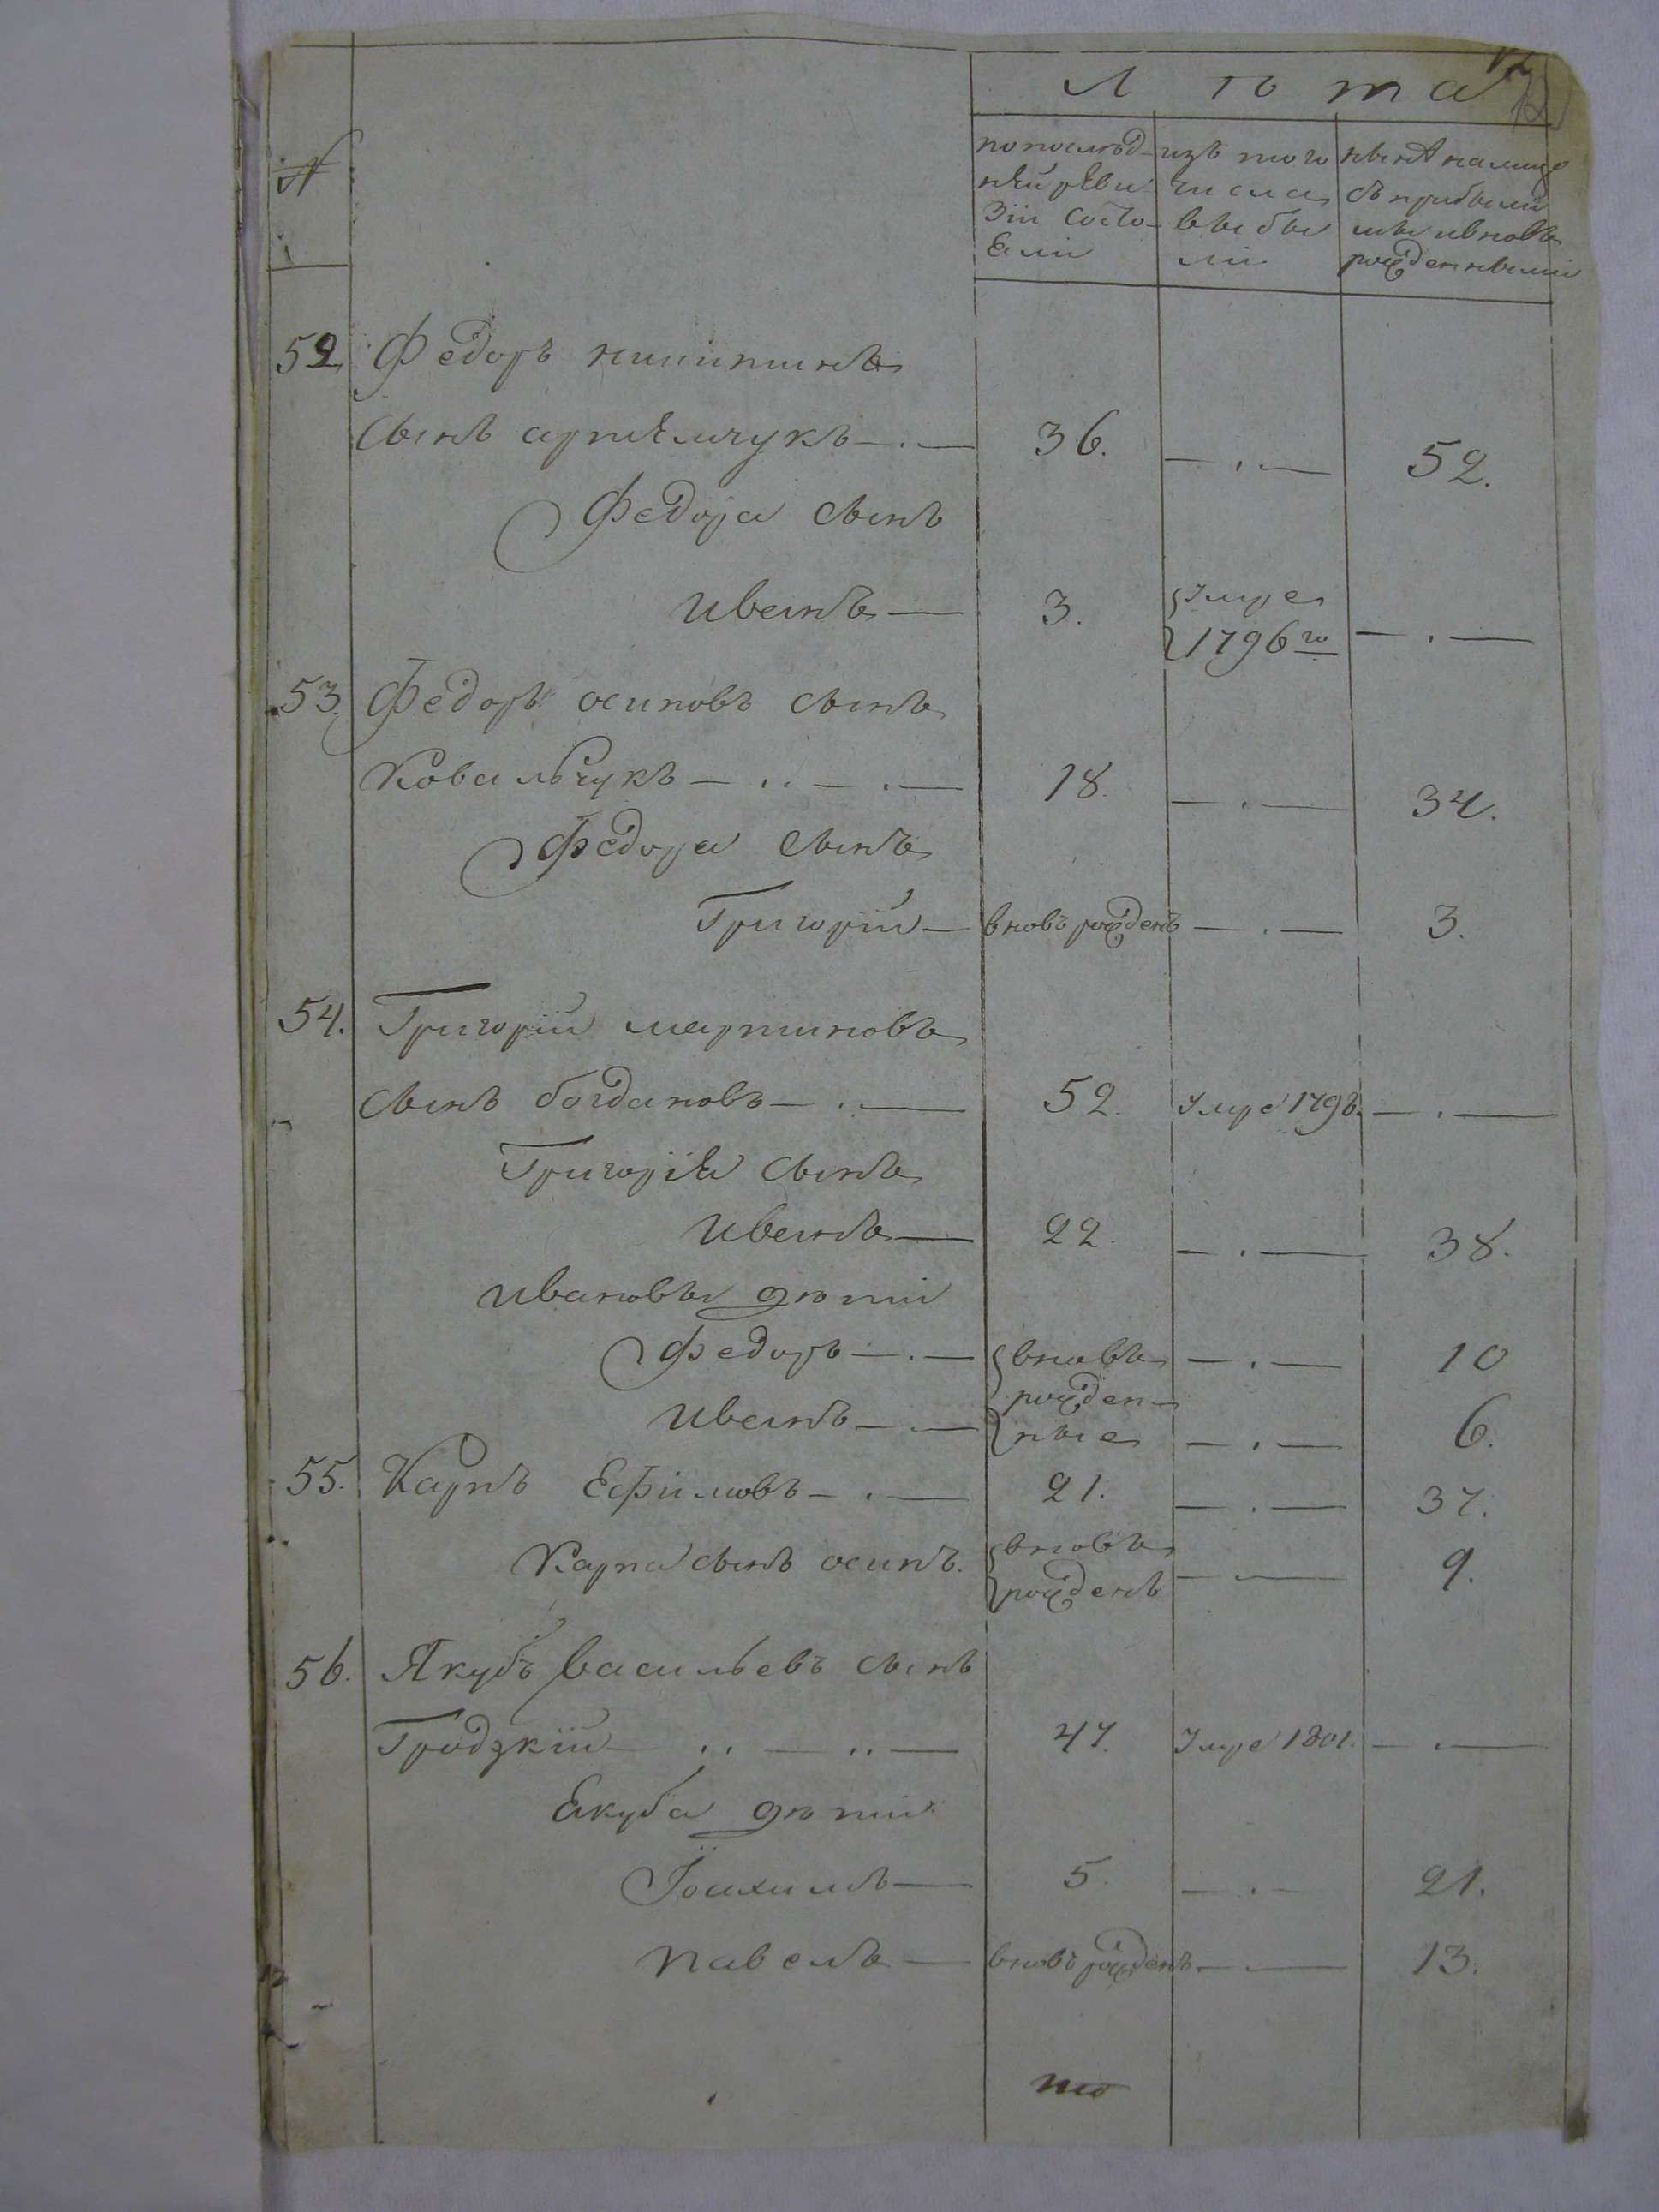 Лѣта
№
по послѣд-
нѣй рѣви
зіи состо-
ѧли
изъ того
числа
выбы
ли
нынѣ на лицо
съ прибылы
мы и вновь
рожденными
52 Федоръ никитинъ
сынъ артѣмчукъ — . — 36. — . — 52.
Федора сынъ
иванъ — 3. умре
1796го — . —
53. Федоръ осиповъ сынъ
Ковальчукъ — .. — . — 18. — . — 34.
Федора сынъ
Григорій — вновь рожденъ — . — 3.
54. Григорій мартиновъ
сынъ богдановъ — . — 52. умре 1798. — . —
Григорія сынъ
иванъ — 22. — . — 38.
ивановы дѣти
Федоръ — . — вновь — . — 10
рожден-
иванъ — . — ные — . — 6.
55. Карпъ Ефимовъ — . — 21. — . — 37.
Карпа сынъ осипъ. вновь
рожденъ — — 9.
56. Якубъ васильевъ сынъ
Гродзкій — .. — .. — 47. умре 1801. — . —
Якуба дѣти
Іоахимъ — 5. — . — 21.
павелъ — вновь рожденъ — — 13.